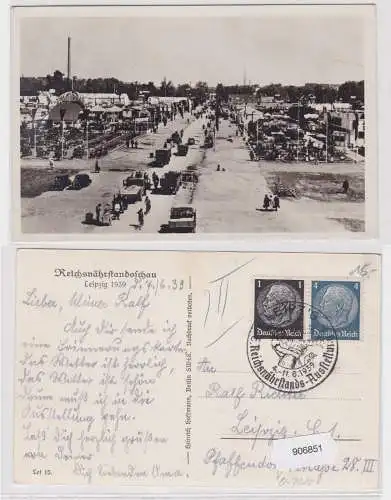 Reichsnährstandsschau
Leipzig 1939
d. 7./6.39
Lieber, kleiner Ralf
Auch dir sende ich
eine Erinnerungskarte
das Wetter ist herrlich,
das Wetter ist schön
muß ich in die
Ausstellung gehn.
Laß dich herzlich grüßen
von Deiner
Dich liebenden Oma.
Let 15.
Heinrich Hoffmann, Berlin SW68, Nachdruck verboten.
III
15,-
1 1 4 4
Deutsches Reich Deutsches Reich
Reichsnährstands-Ausstellung
4.-11.6.1939
An
Ralf
Leipzig C. 1
Pfaffendorferstraße 28. III
906851